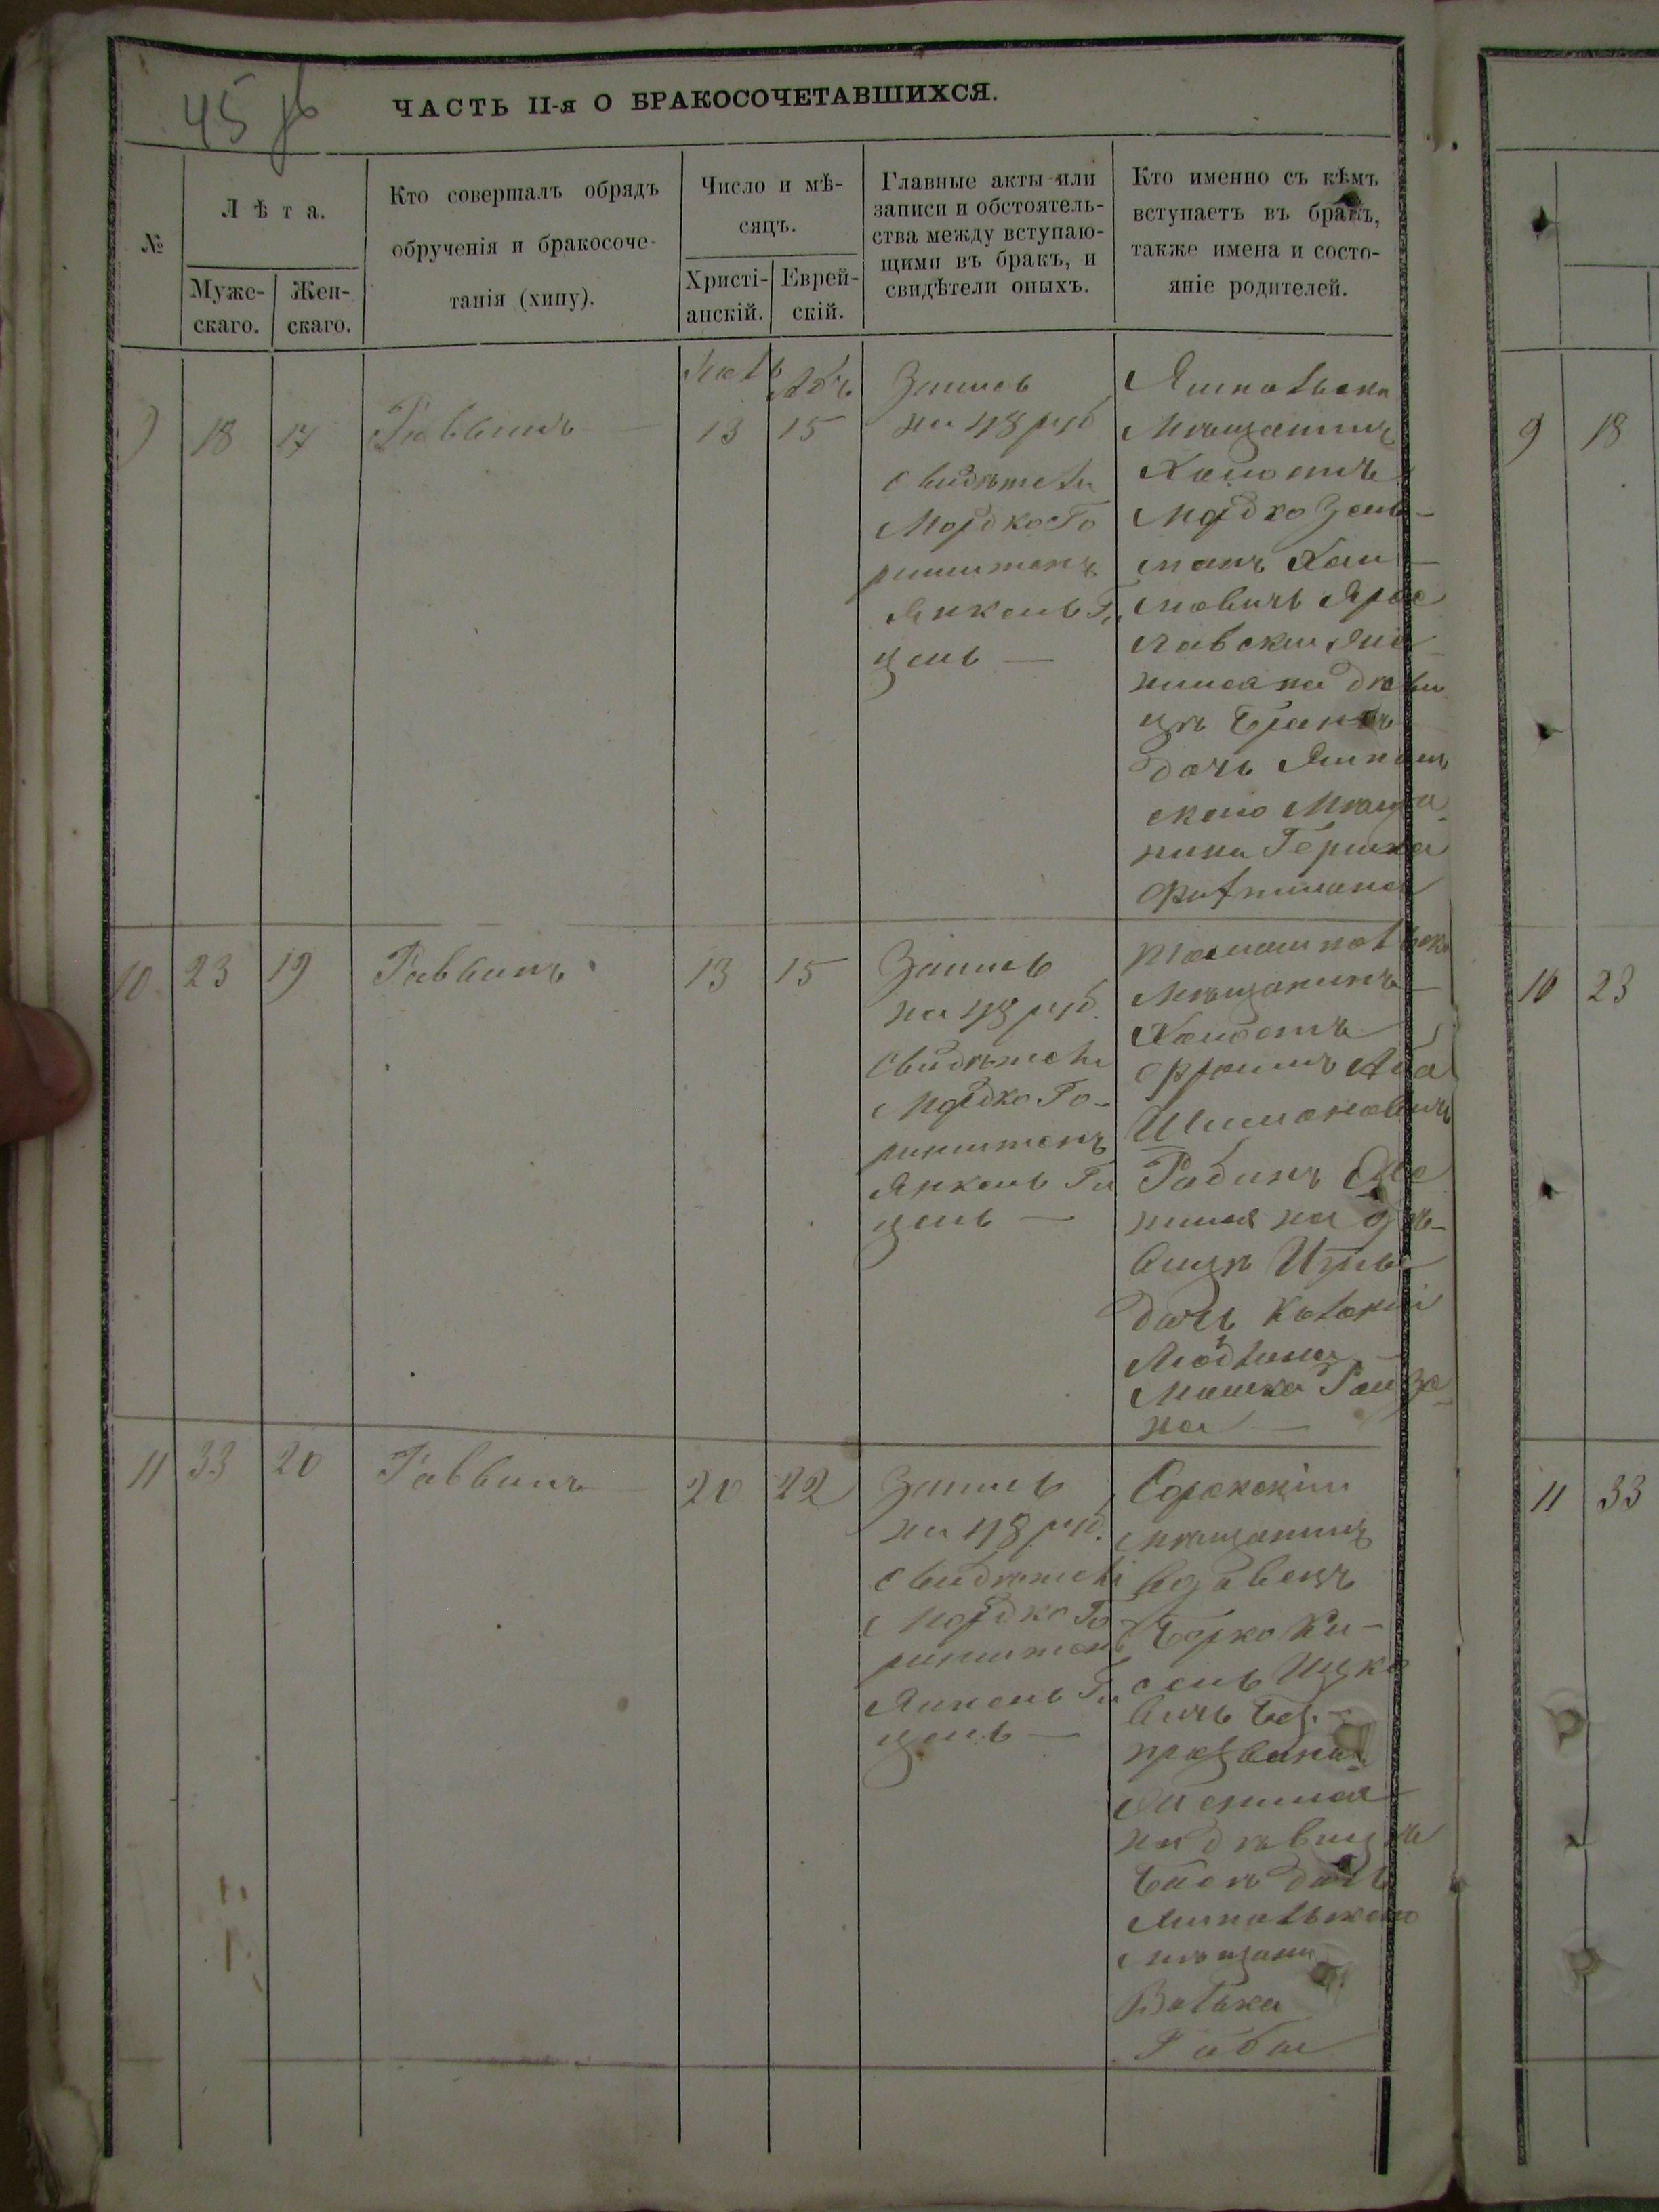 45 об
ЧАСТЬ II-я О БРАКОСОЧЕТАВШИХСЯ.
№
Лѣта.
Муже-
скаго.
Жен-
скаго.
Кто совершалъ обрядъ
обрученія и бракосоче-
танія (хипу).
Число и мѣ-
сяцъ.
Христі-
анскій.
Еврей-
скій.
Главные акты или
записи и обстоятель-
ства между вступаю-
щими въ бракъ, и
свидѣтели оныхъ.
Кто именно съ кѣмъ
вступаетъ въ бракъ,
также имена и состо-
яніе родителей.
9
18
17
Раввинъ
13
15
Запись
на 48 руб
свидѣтели
Мордко Го
ринштенъ
Янкель Ги
цель
Ямпольски
Мѣщанинъ
Холостъ
Мордко Зель-
манъ Хаи
мовичъ Яро
славски
на дѣви
цѣ
дочь
Мѣща
нина Гершка
10
23
19
Раввинъ
13
15
Запись
на 48 руб.
Свидѣтели
Мордко Го-
ринштенъ
Янкель Ги
цель
Томашпольски
Мѣщанинъ
Холостъ
Фроимъ Аба
Шимоновичъ
Рабинъ Же
нился на дѣ-
вицѣ
дочь
Мошка
на
11
33
20
Раввинъ
20
22
Запись
на 48 руб.
свидѣтели
Мордко Го
ринштенъ
Янкель Ги
цель
Сорокскій
мѣщанинъ
вдовецъ
Берко Ки-
сель Ицко
вичъ Без-
прозвани
Женился
на дѣвицѣ
дочь
Ямпольского
мѣщани
Волька
9
18
10
23
11
33